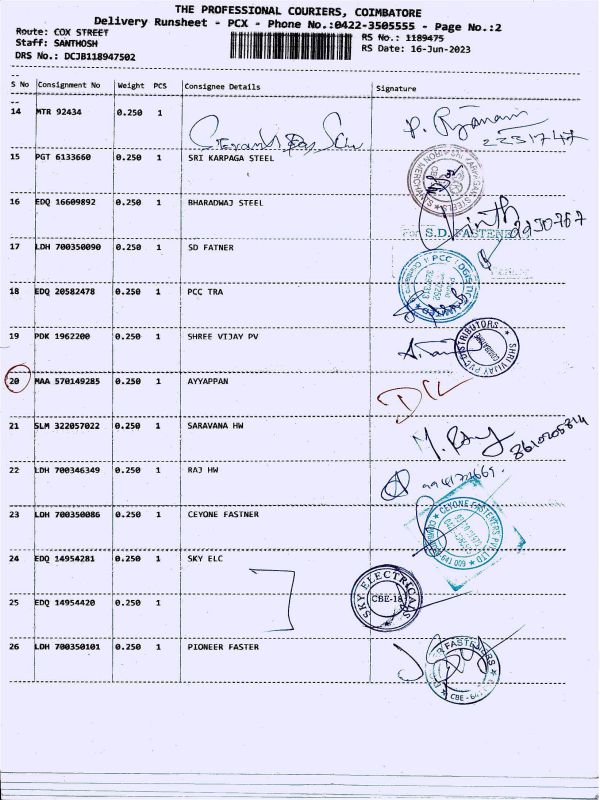 THE PROFESSIONAL COURIERS, COIMBATORE
Delivery Runsheet - PCX - Phone No.:0422-3505555 - Page No.:2
Route: COX STREET
RS No.: 1189475
Staff: SANTHOSH
RS Date: 16-Jun-2023
DRS No.: DCJB118947502
S No Consignment No Weight PCS Consignee Details Signature
14 MTR 92434 0.250 1
15 PGT 6133660 0.250 1 SRI KARPAGA STEEL
16 EDQ 16609892 0.250 1 BHARADWAJ STEEL
For S.D. FASTENE
17 LDH 700350090 0.250 1 SD FATNER
18 EDQ 20582478 0.250 1 PCC TRA
PCC LOGISTIC
19 PDK 1962200 0.250 1 SHREE VIJAY PV
SHRI VIJAY PVC DISTRIBUTORS
20 MAA 570149285 0.250 1 AYYAPPAN
21 SLM 322057022 0.250 1 SARAVANA HW
22 LDH 700346349 0.250 1 RAJ HW
23 LDH 700350086 0.250 1 CEYONE FASTNER
CEYONE FASTENERS PVT LTD
24 EDQ 14954281 0.250 1 SKY ELC
SKY ELECTRICALS
CBE-18
25 EDQ 14954420 0.250 1
26 LDH 700350101 0.250 1 PIONEER FASTER
FASTENERS